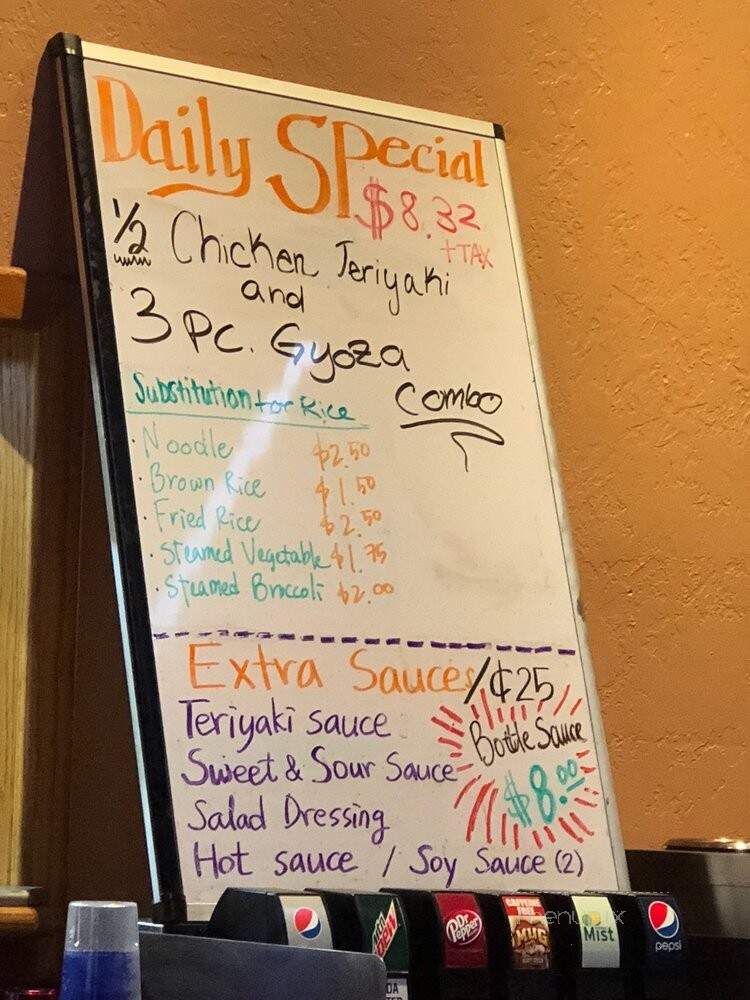 Daily Special
$8.32
+TAX
1/2 Chicken Teriyaki
and
3 PC. Gyoza
Combo
Substitution for Rice
· Noodle $2.50
· Brown Rice $1.50
· Fried Rice $2.50
· Steamed Vegetable $1.75
· Steamed Broccoli $2.00
Extra Sauces /¢25
Teriyaki sauce
Sweet & Sour Sauce
Salad Dressing
Hot sauce / Soy Sauce (2)
Bottle Sauce
$8.00
Dr Pepper
CAFFEINE FREE
MUG
Mist
pepsi